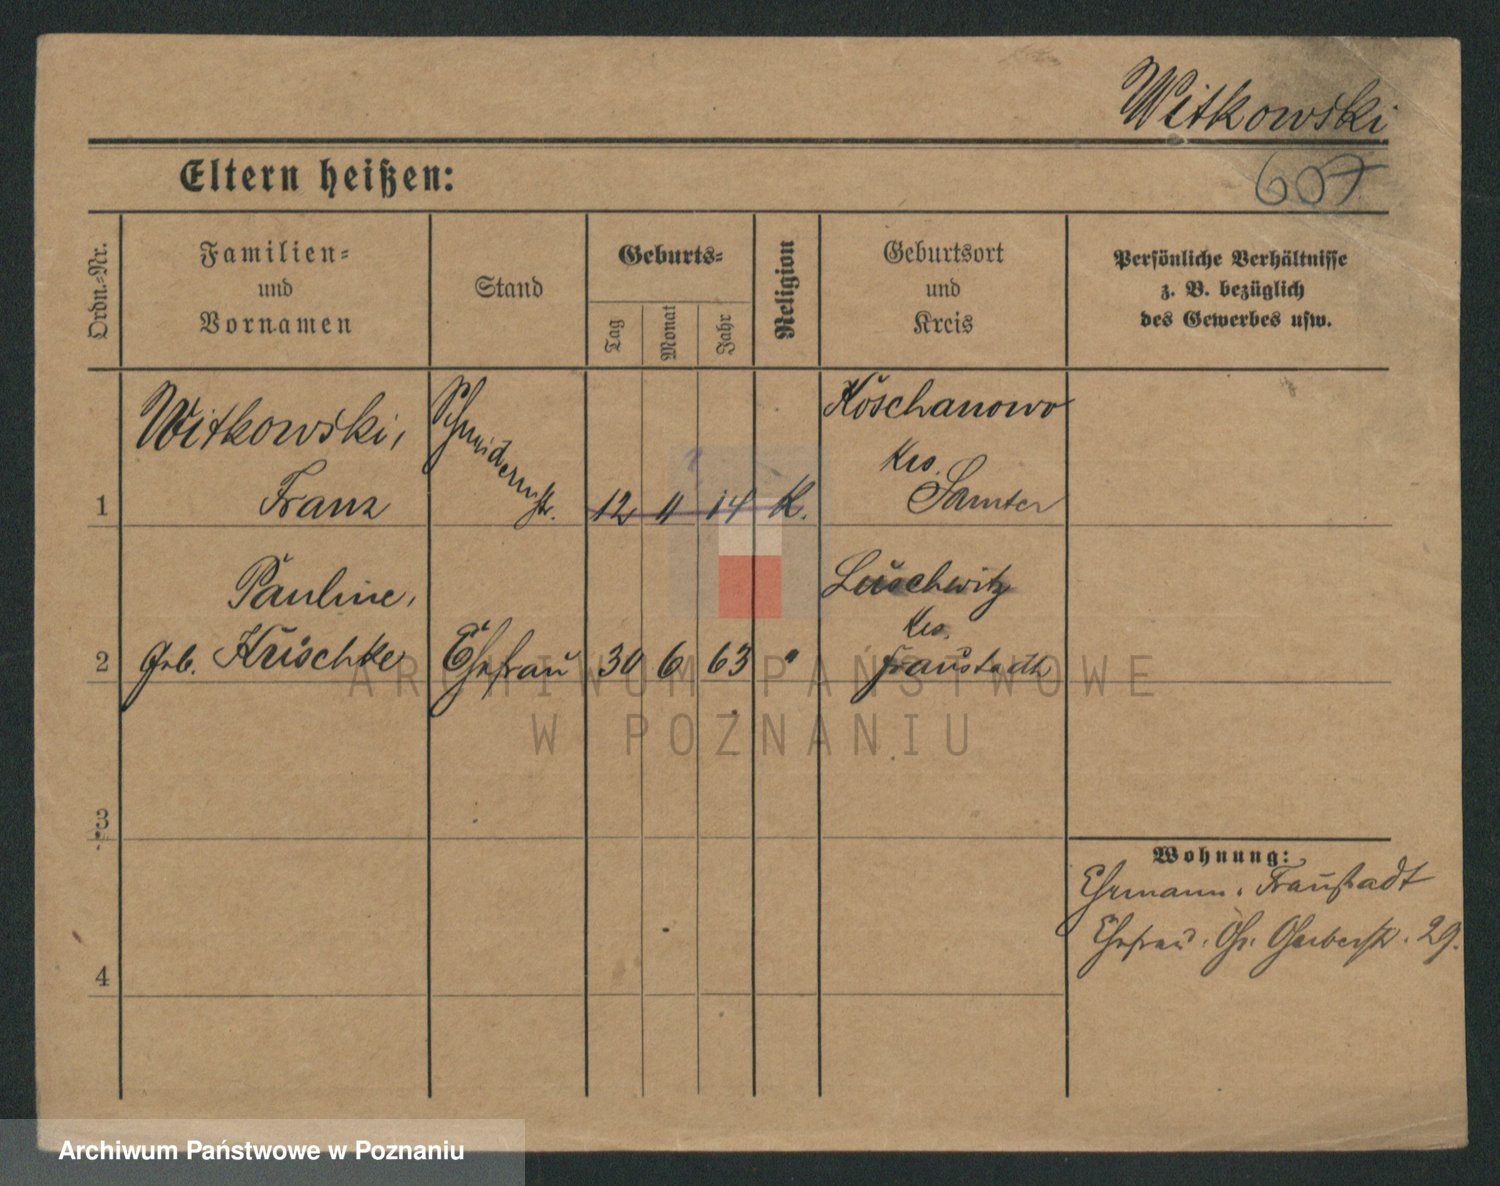 Witkowski
607
Eltern heißen:
Ordn.-Nr.
Familien-
und
Vornamen
Stand
Geburts-
Tag
Monat
Jahr
Religion
Geburtsort
und
Kreis
Persönliche Verhältnisse
z. B. bezüglich
des Gewerbes usw.
1
Witkowski,
Franz
Schneidermstr.
12 11 14 K.
Koschanowo
Krs.
Samter
2
Pauline,
geb. Kuschke
Ehefrau
30 6 63 "
Luschwitz
Krs.
Fraustadt
3
4
Wohnung:
Ehemann. Fraustadt
Ehefrau. Gr. Gerberstr. 29.
ARCHIWUM PAŃSTWOWE
W POZNANIU
Archiwum Państwowe w Poznaniu